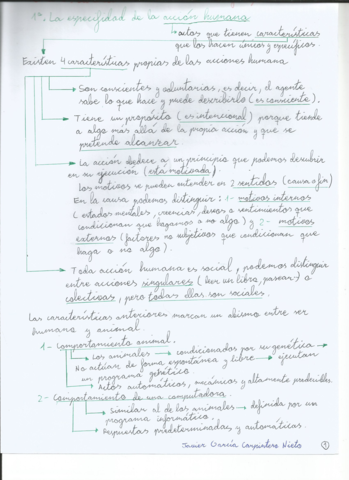 1º. La especificidad de la acción humana
actos que tienen características
que los hacen únicos y específicos.
Existen 4 características propias de las acciones humana
Son conscientes y voluntarias, es decir, el agente
sabe lo que hace y puede describirlo (es consciente).
Tiene un propósito (es intencional) porque tiende
a algo más allá de la propia acción y que se
pretende alcanzar
La acción obedece a un principio que podemos descubrir
en su ejecución (está motivada).
Los motivos se pueden entender en 2 sentidos (causa o fin)
En la causa podemos distinguir: 1- motivos internos
(estados mentales, creencias, deseos o sentimientos que
condicionan que hagamos o no algo) y 2- motivos
externos (factores no subjetivos que condicionan que
haga o no algo).
Toda acción humana es social, podemos distinguir
entre acciones singulares (leer un libro, pasear) o
colectivas, pero todas ellas son sociales.
Las características anteriores marcan un abismo entre ser
humano y animal.
1- Comportamiento animal.
Los animales → condicionados por su genética →
No actúan de forma espontánea y libre → ejecutan
un programa genético
Actos automáticos, mecánicos y altamente predecibles.
2- Comportamiento de una computadora.
Similar al de los animales → definida por un
programa informático.
Respuestas predeterminadas y automáticas.
Javier García Carpintero Nieto
1